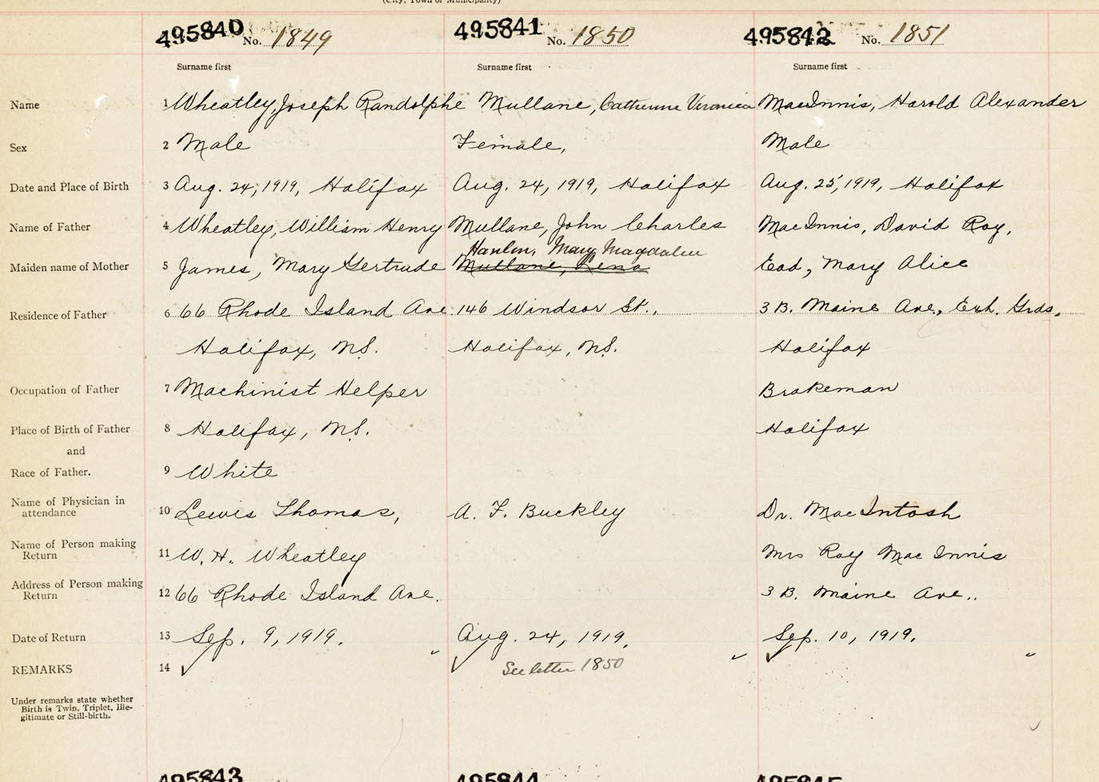 (City, Town or Municipality)
495840 No. 1849 495841 No. 1850 495842 No. 1851
Surname first Surname first Surname first
Name 1 Wheatley, Joseph Randolphe Mullane, Catherine Veronica MacInnis, Harold Alexander
Sex 2 Male Female, Male
Date and Place of Birth 3 Aug. 24, 1919, Halifax Aug. 24, 1919, Halifax Aug. 25, 1919, Halifax
Name of Father 4 Wheatley, William Henry Mullane, John Charles MacInnis, David Roy,
Hanlon, Mary Magdalen
Maiden name of Mother 5 James, Mary Gertrude Mullane, Lena Ead, Mary Alice
Residence of Father 6 66 Rhode Island Ave 146 Windsor St., 3 B. Maine Ave, Exh. Grds,
Halifax, N.S. Halifax, N.S. Halifax
Occupation of Father 7 Machinist Helper Brakeman
Place of Birth of Father 8 Halifax, N.S. Halifax
and
Race of Father. 9 White
Name of Physician in
attendance 10 Lewis Thomas, A. F. Buckley Dr. MacIntosh
Name of Person making
Return 11 W. H. Wheatley Mrs Roy MacInnis
Address of Person making
Return 12 66 Rhode Island Ave. 3 B. Maine Ave..
Date of Return 13 Sep. 9, 1919. Aug. 24, 1919. Sep. 10, 1919.
REMARKS 14 See letter 1850
Under remarks state whether
Birth is Twin, Triplet, Ille-
gitimate or Still-birth.
495843 495844 495845